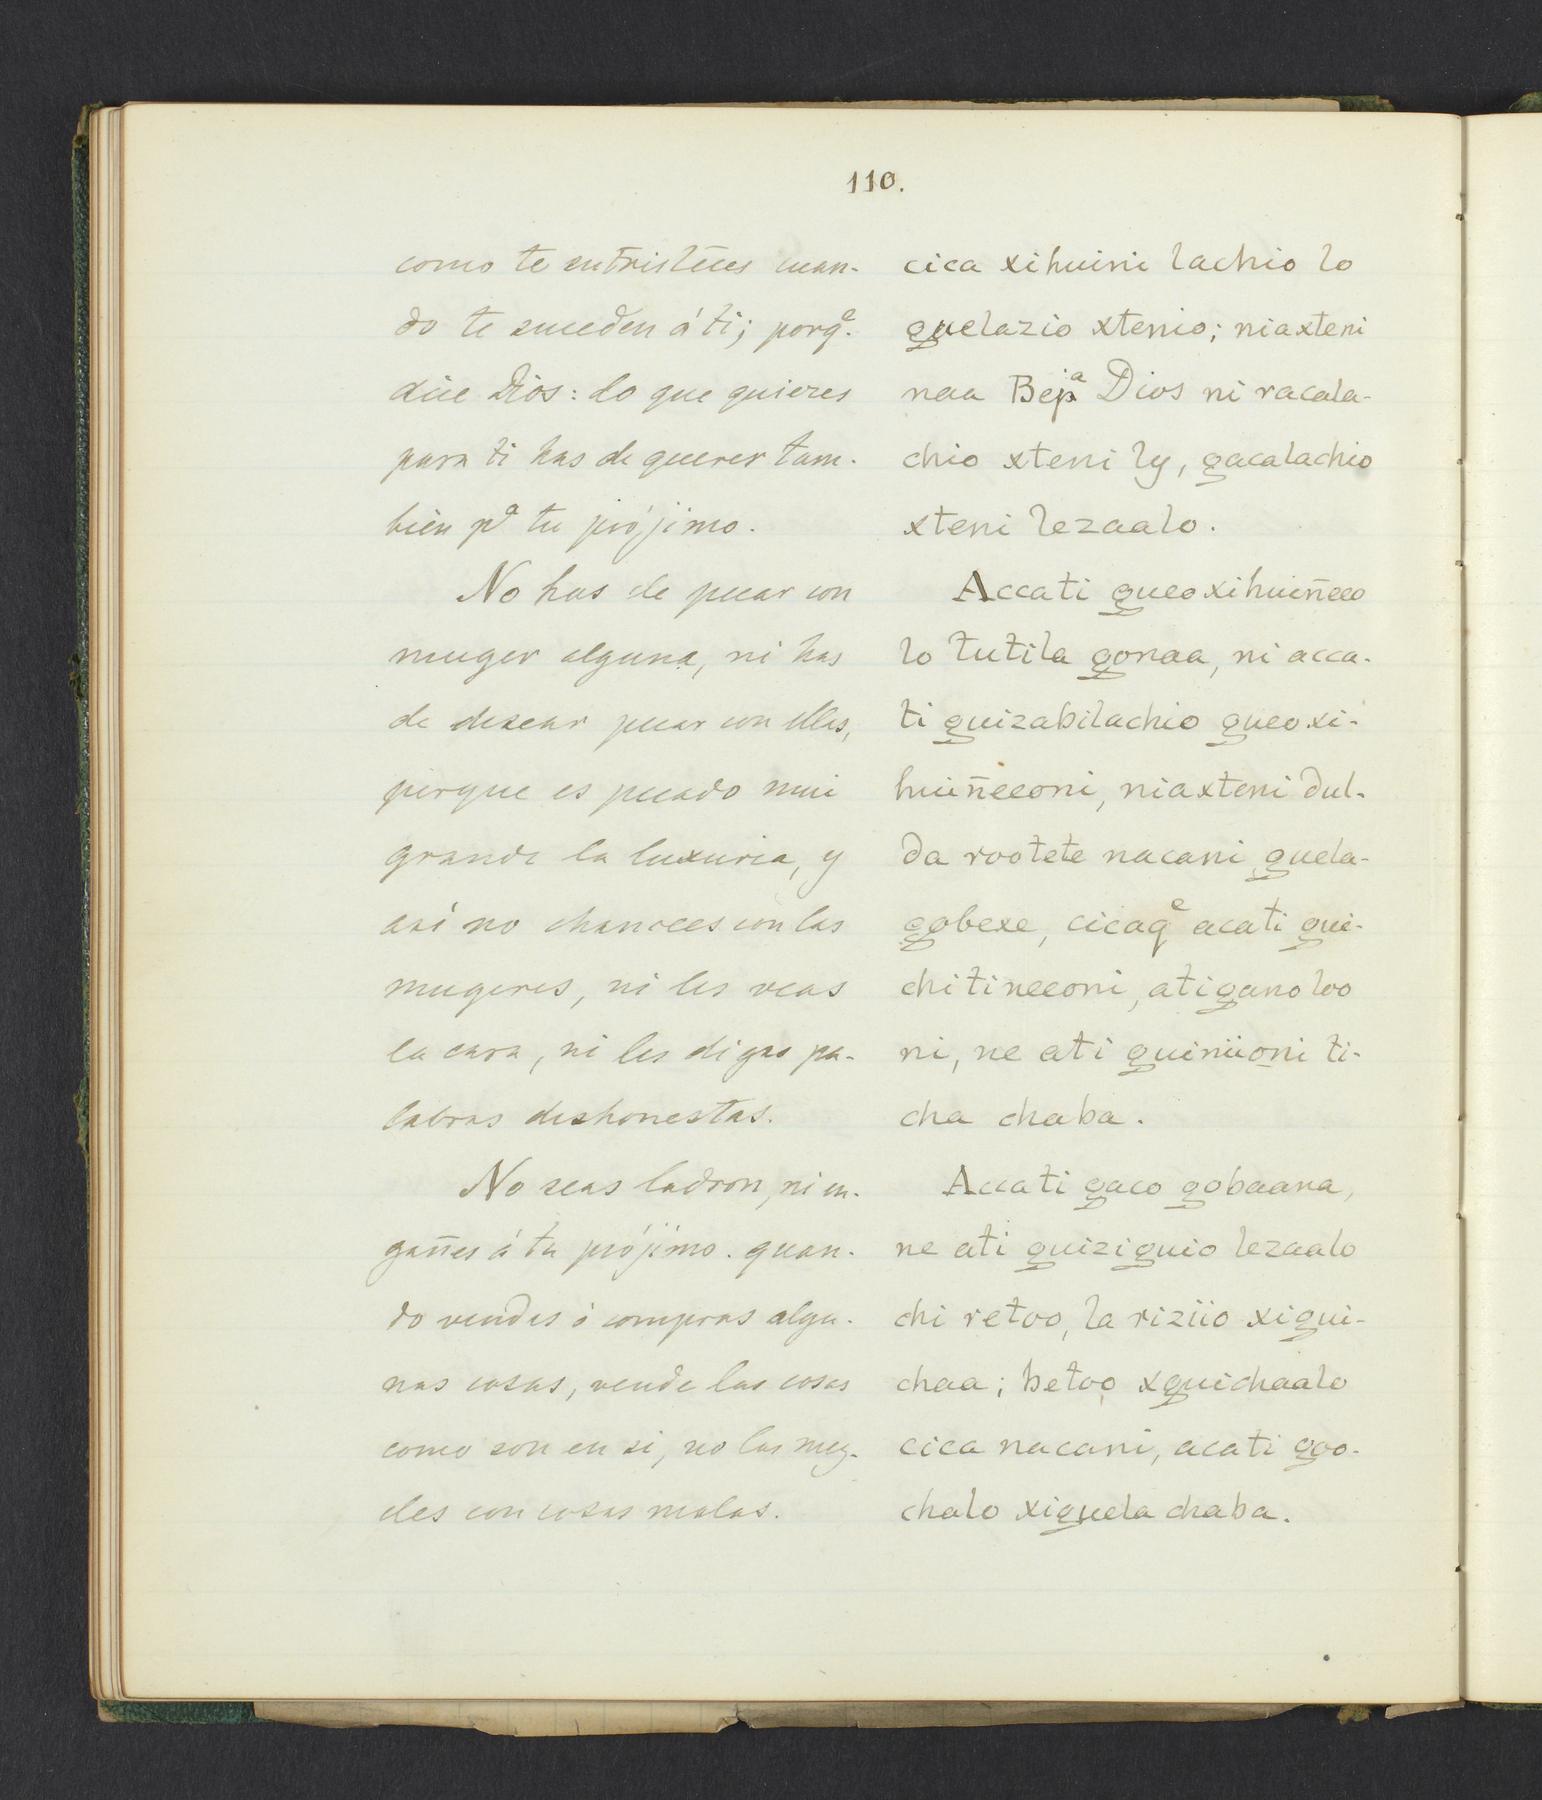 110.
como te entristeces cuan-
do te suceden á ti; porqᵉ.
dice Dios: lo que quieres
para ti has de querer tam-
bien pᵃ tu prójimo.
No has de pecar con
muger alguna, ni has
de desear pecar con ellas,
porque es pecado mui
grande la luxuria, y
asi no chancees con las
mugeres, ni les veas
la cara, ni les digas pa-
labras deshonestas.
No seas ladron, ni en-
gañes á tu prójimo. quan-
do vendes ó compras algu-
nas cosas, vende las cosas
como son en si, no las mez-
cles con cosas malas.
cica xihuini lachio lo
guelazio xtenio; niaxteni
naa Bejᵃa Dios ni racala-
chio xteni ly, gacalachio
xteni lezaalo.
Accati gueoxihuiñeeo
lo tutila gonaa, ni acca-
ti guizabilachio gueoxi-
huiñeeoni, niaxteni dul-
da rootete nacani guela-
gobexe, cicaqᵉ acati gui-
chitineeoni, atiganoloo
ni, ne ati guiniioni ti-
cha chaba.
Accati gaco gobaana,
ne ati guiziguio lezaalo
chi retoo, la riziio xigui-
chaa; betoo xguichaalo
cica nacani, acati goo-
chalo xiguela chaba.